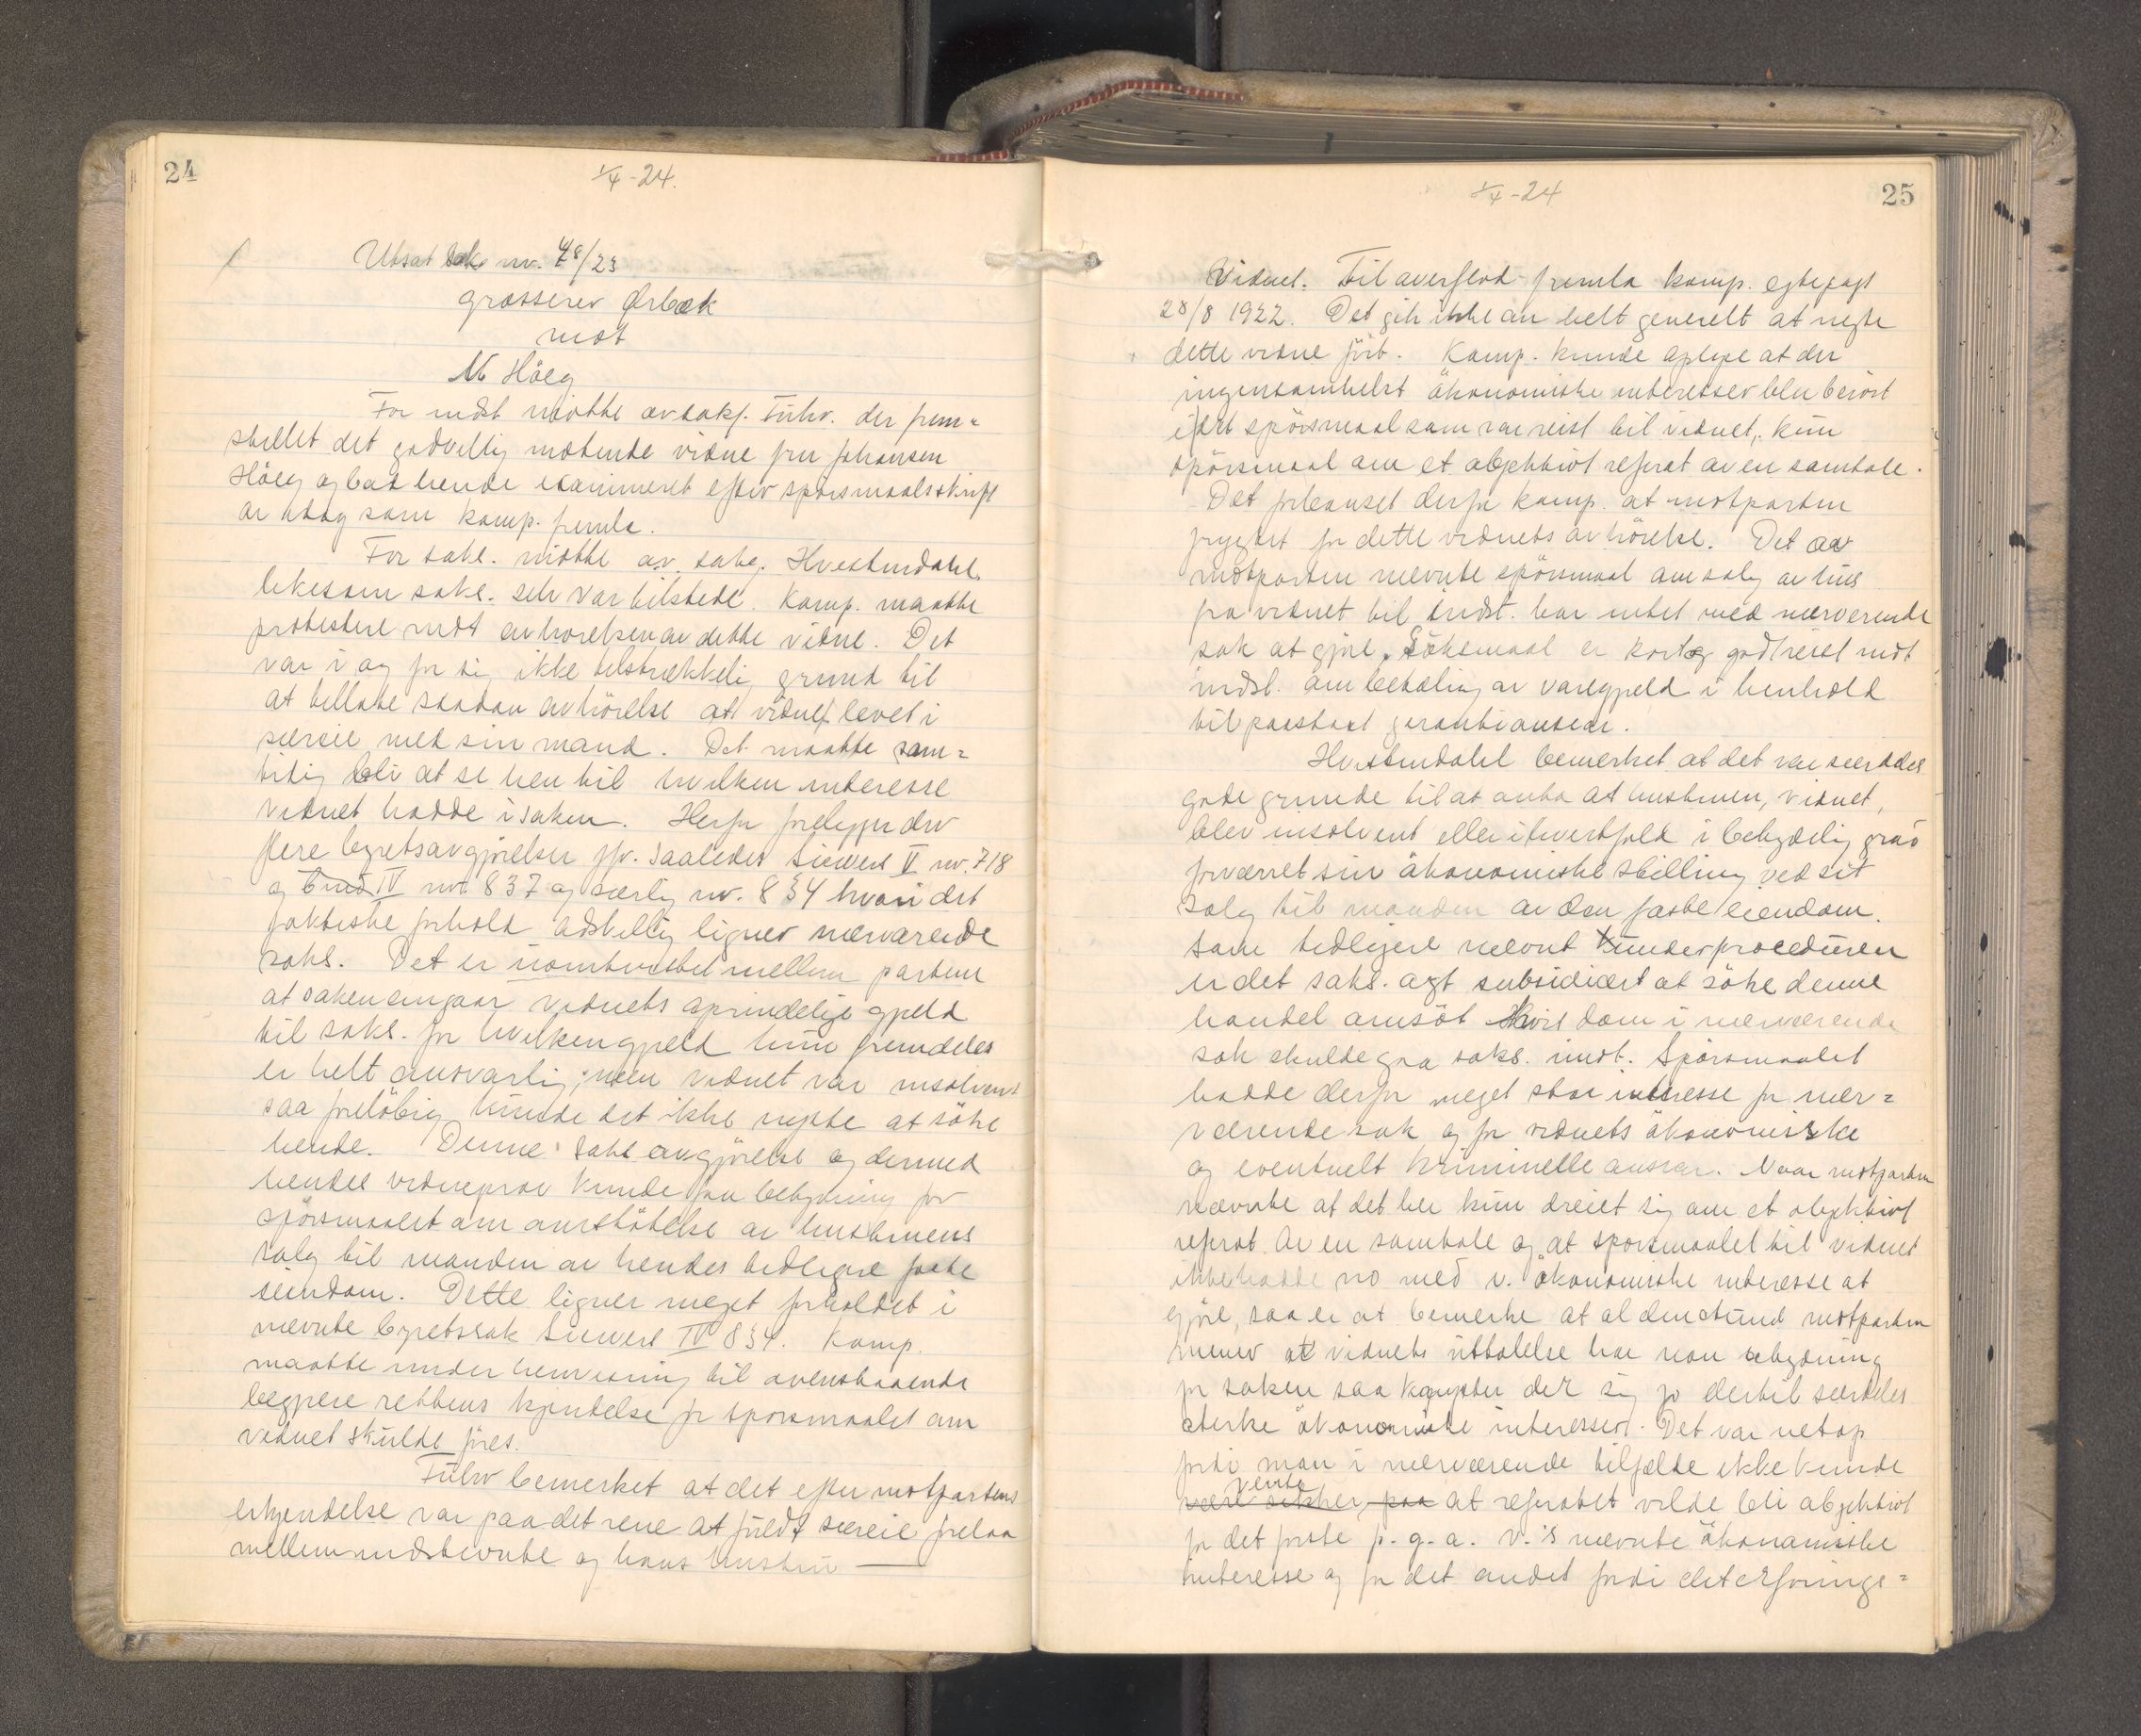 24
1/4-24.
Utsat sak nr. 48/23
grosserer Ørbæk
mot
N Höeg
For indst møtte av sakf. Führ. der frem=
stillet det godvillig møtende vidne fru Johansen
Höeg og bad hende examineret efter spörsmaalsskrift
av idag som komp. fremla.
For saks. møtte av. sakf. Hvestendahl
likesom saks. selv var tilstede. Komp. maatte
protestere mot avhørelsen av dette vidne. Det
var i og for sig ikke tilstrækkelig grund til
at tillate saadan avhörelse at vidnet levet i
særeie med sin mand. Det maatte sam=
tidig bli at se hen til hvilken interesse
vidnet hadde i saken. Herfor foreligger der
flere byretsavgjörelser jfr. saaledes Siewers V nr. 718
og bind IV nr. 837 og særlig nr. 834 hvori det
faktiske forhold adskillig ligner nærværende
saks. Det er uomtvistet mellem partene
at saken angaar vidnets oprindelige gjæld
til saks. for hvilken gjæld hun fremdeles
er helt ansvarlig; men vidnet var insolvent
saa foreløbig kunde det ikke nytte at söke
hende. Denne saks avgjörelse og dermed
hendes vidneprov kunde faa betydning for
spörsmaalet om omstötelse av hustruens
salg til manden av hendes tidligere faste
eiendom. Dette ligner meget forholdet i
nævnte byretssak Siewers IV 834. Komp.
maatte under henvisning til ovenstaaende
begjære rettens kjendelse for spörsmaalet om
vidnet skulde föres.
Führ bemerket at det efter motpartens
erkjendelse var paa det rene at fuldt særeie forelaa
mellem indstevnte og hans hustru —
1/4-24
25
Vidnet. Til overflod fremla komp. egtepagt
28/8 1922. Det gik ikke an helt generelt at negte
dette vidne fört. Komp. kunde oplyse at der
ingensomhelst ökonomiske interesser blev berört
i det spörsmaal som var reist til vidnet, kun
spörsmaal om et objektivt referat av en samtale.
Det forbauset derfor komp. at motparten
frygtet for dette vidnets avhörelse. Det av
motparten nævnte spörsmaal om salg av hus
fra vidnet til indst. har intet med nærverende
sak at gjöre. Söksmaal er kort og godt reist mot
indst. om betaling av varegjæld i henhold
til paastaat garantiansvar.
Hvestendahl bemerket at det var særdeles
gode grunde til at anta at hustruen, vidnet,
blev insolvent eller i hvertfald i betydelig grad
forværret sin ökonomiske stilling ved sit
salg til manden av den faste eiendom.
Som tidligere nævnt under proceduren
er det saks. agt subsidiært at söke denne
handel omstöt hvis dom i nærværende
sak skulde gaa saks. imot. Spörsmaalet
hadde derfor meget stor interesse for nær=
værende sak og for vidnets ökonomiske
og eventuelt kriminelle ansvar. Naar motparten
nævnte at det her kun dreiet sig om et objektivt
referat av en samtale og at spörsmaalet til vidnet
ikke hadde no med v. ökonomiske interesse at
gjöre, saa er at bemerke at al den stund motparten
mener at vidnets uttalelse har noen betydning
for saken saa knytter det sig jo dertil særdeles
sterke ökonomiske interesser. Det var netop
fordi man i nærværende tilfælde ikke kunde
vente
være sikker paa at referatet vilde bli objektivt
for det förste p. g. a. v.'s nævnte ökonomiske
interesse og for det andet fordi det erfarings=